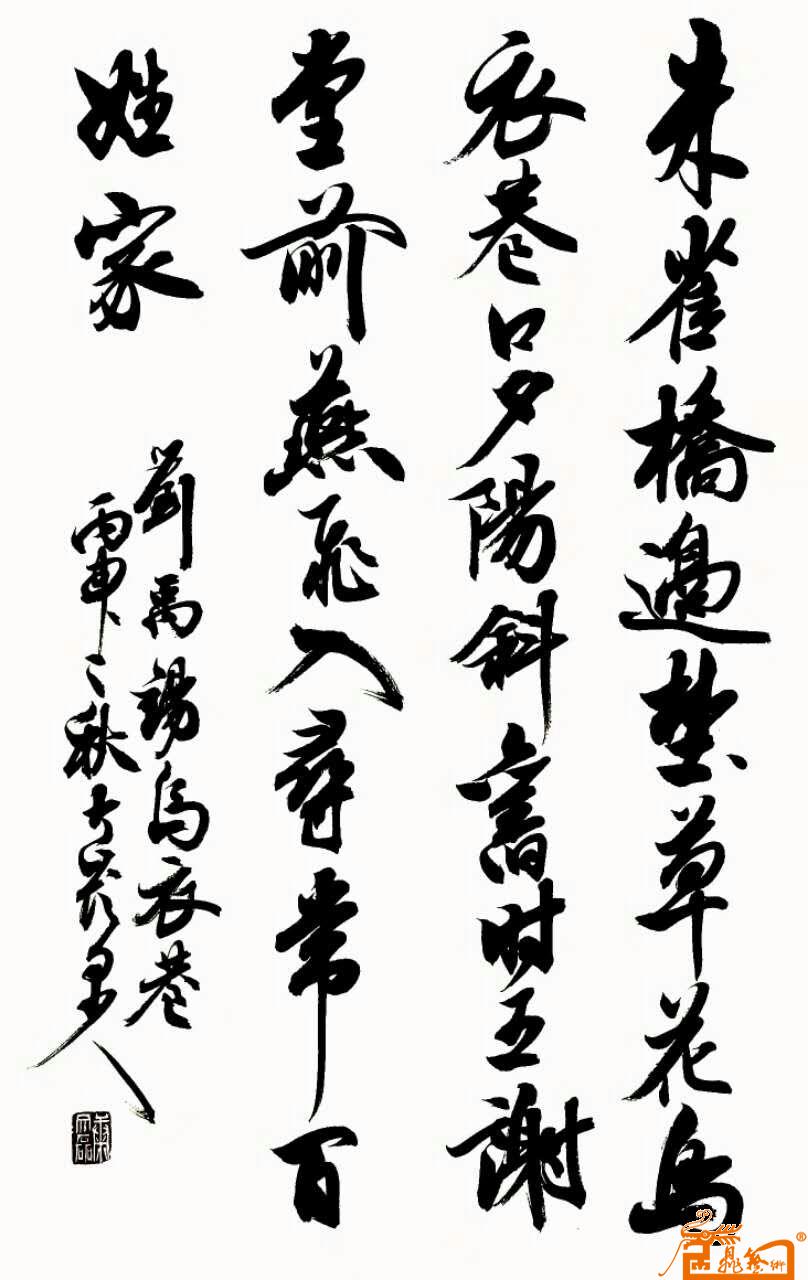 朱雀橋邊埜草花烏
衣巷口夕陽斜舊时王謝
堂前燕飛入尋常百
姓家
劉禹錫烏衣巷
丙申之秋